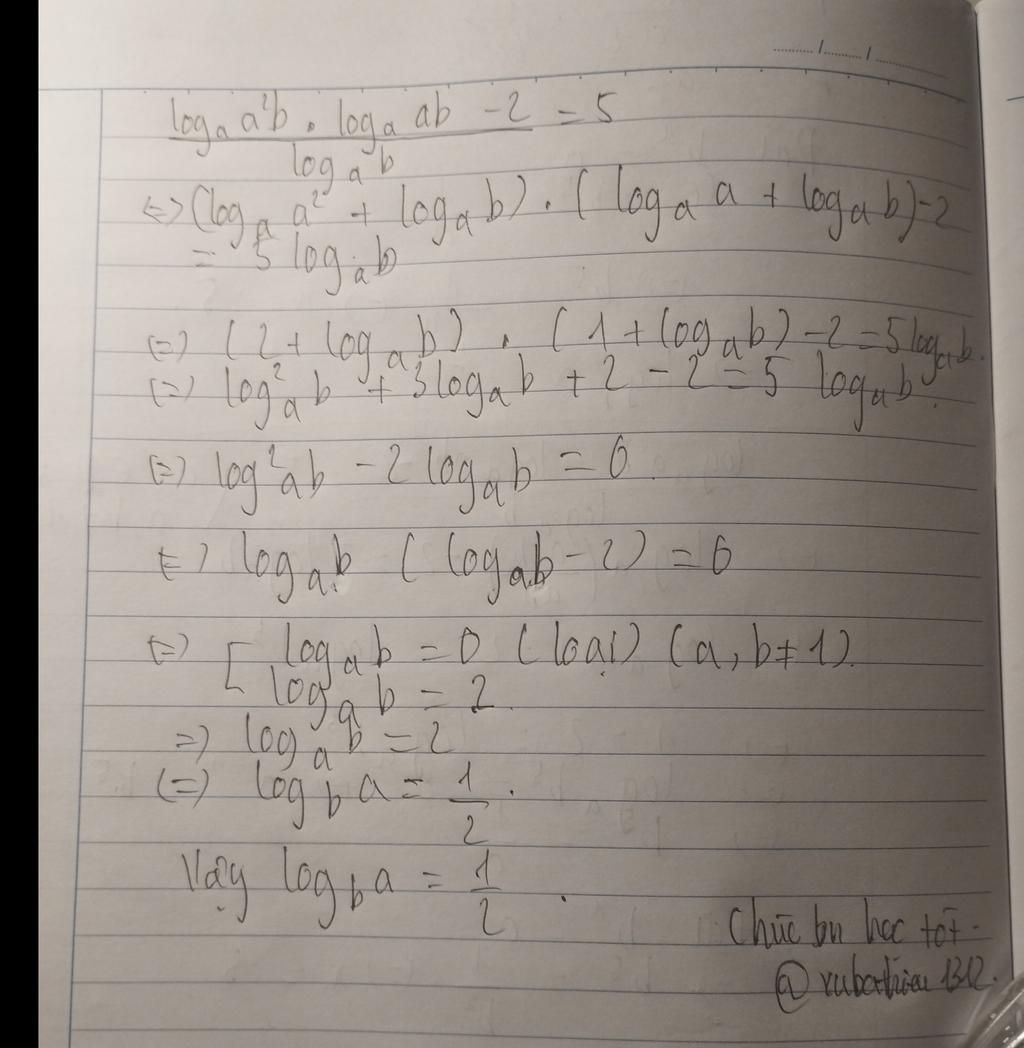 ...../...../.....
logₐ a²b . logₐ ab - 2 = 5
logₐ b
<=> (logₐ a² + logₐ b) . (logₐ a + logₐ b) - 2
= 5 logₐ b
(=) (2 + logₐ b) . (1 + logₐ b) - 2 = 5 logₐ b.
(=) log²ₐ b + 3 logₐ b + 2 - 2 = 5 logₐ b.
(=) log²ₐ b - 2 logₐ b = 0.
(=) logₐ b (logₐ b - 2) = 0
(=) [ logₐ b = 0 (loại) (a, b ≠ 1).
logₐ b = 2.
=) logₐ b = 2
(=) log_b a = 1/2.
Vậy log_b a = 1/2.
Chúc bn học tốt.